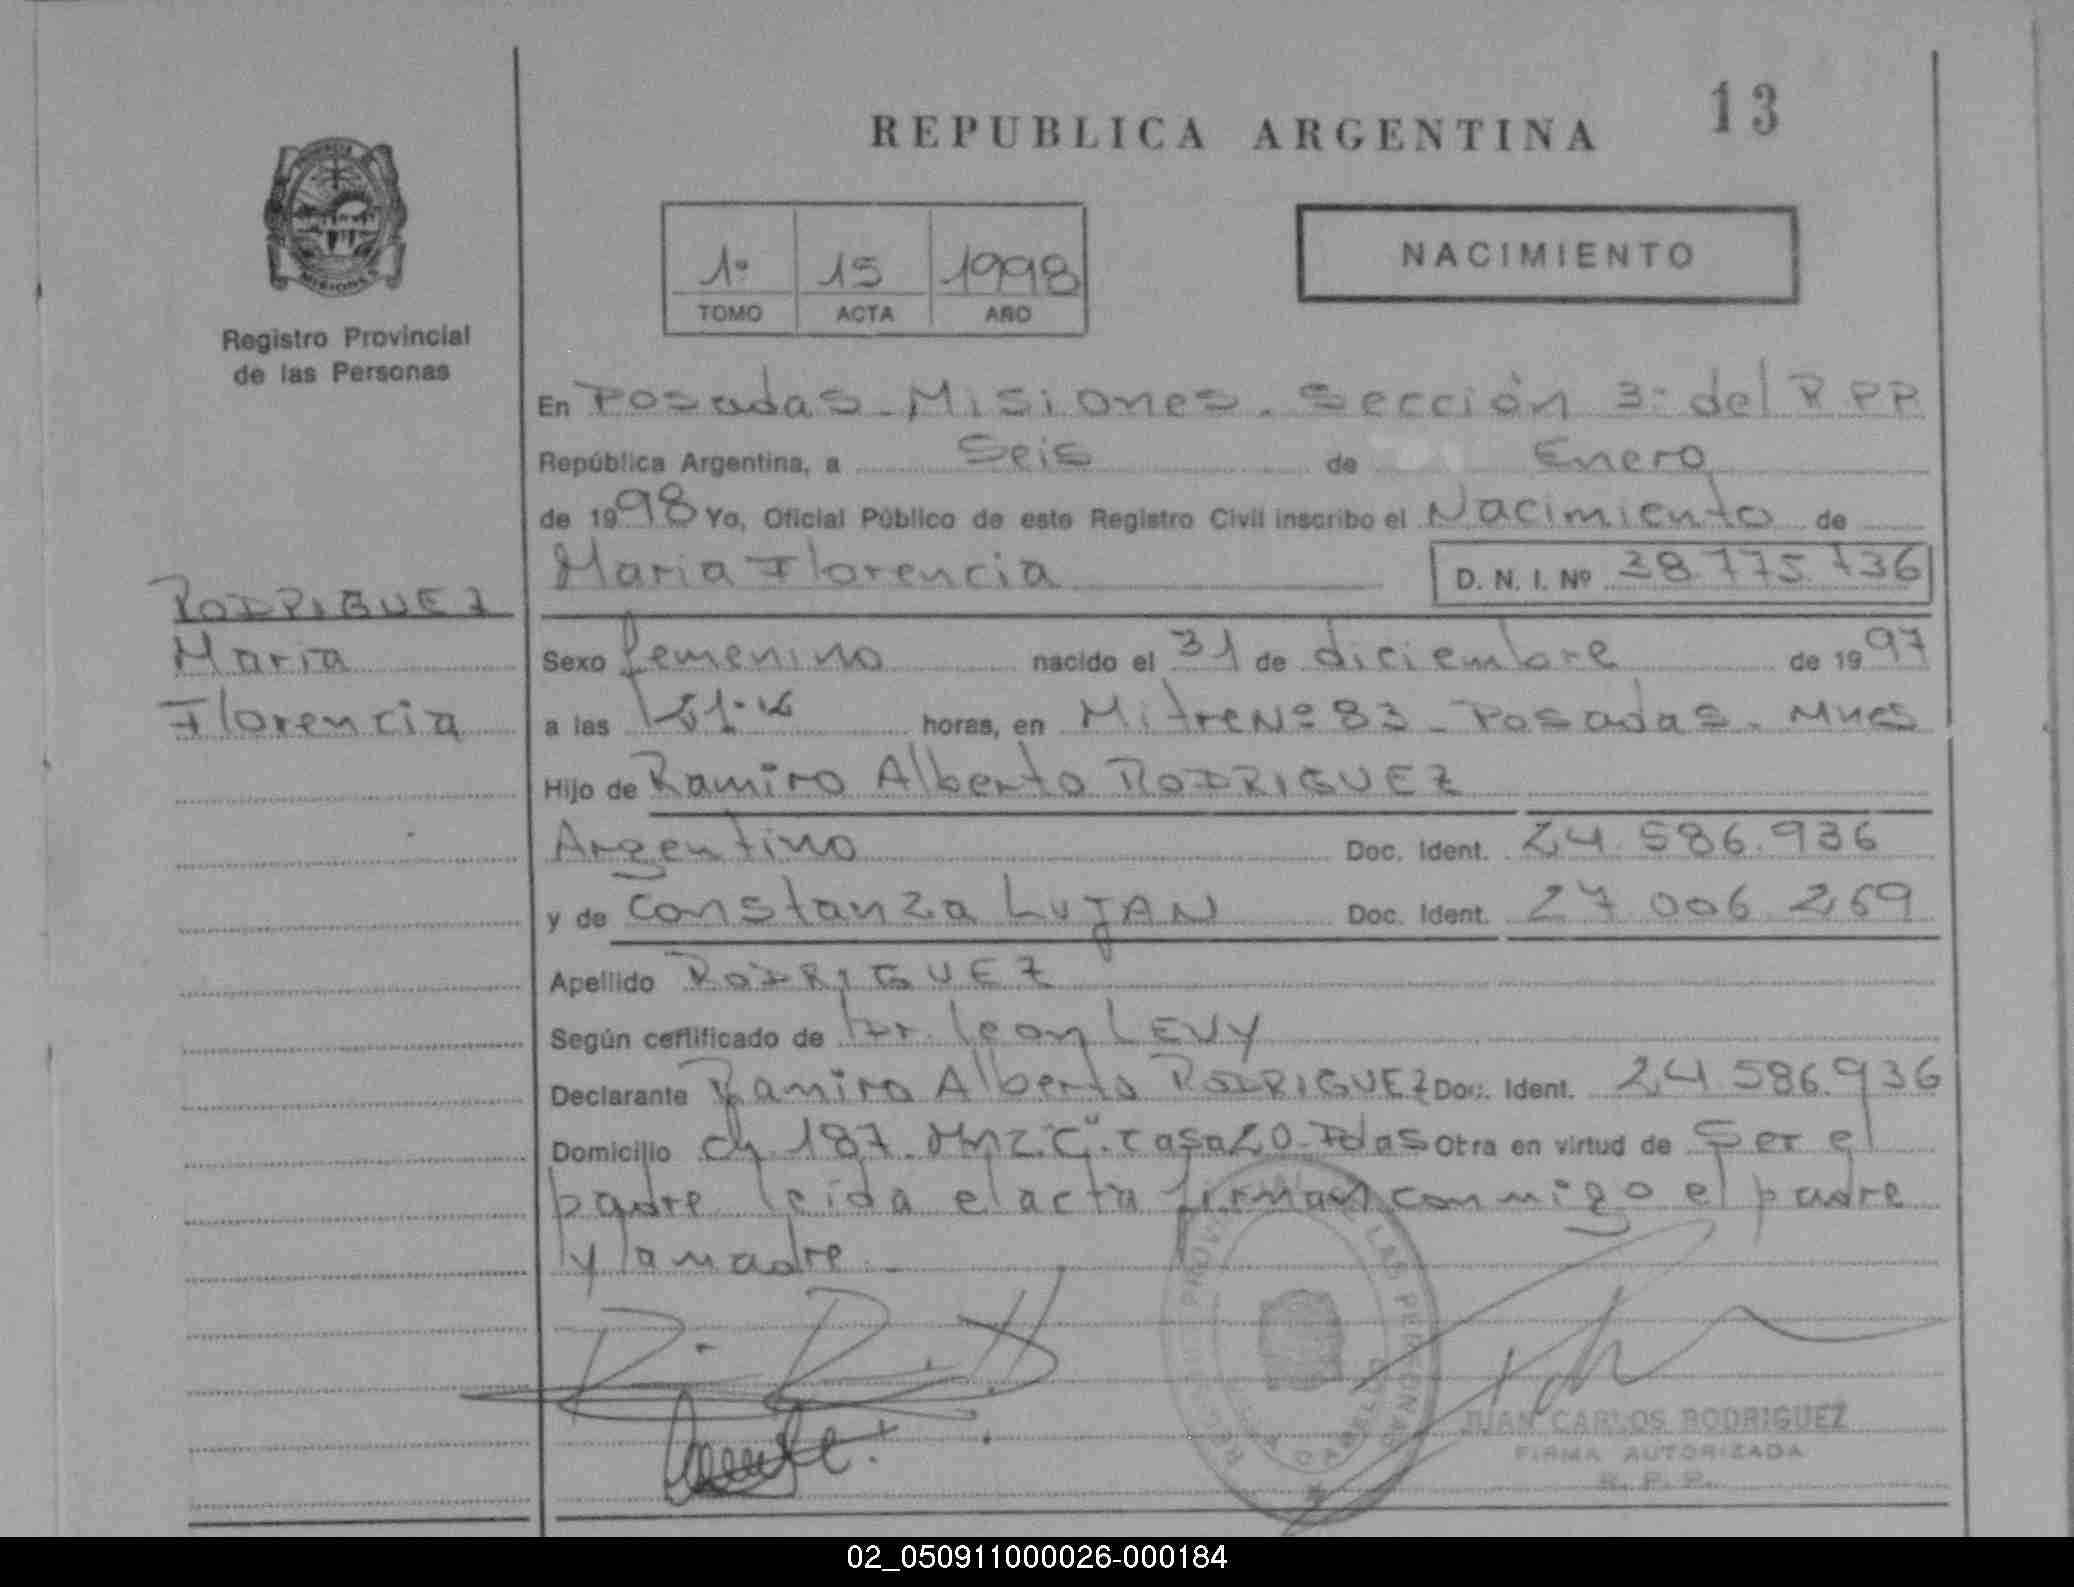 REPUBLICA ARGENTINA
13
Registro Provincial
de las Personas
1º 15 1998
TOMO ACTA AÑO
NACIMIENTO
En Posadas - Misiones. Sección 3ª del R P P
República Argentina, a Seis de Enero
de 1998 Yo, Oficial Público de este Registro Civil inscribo el Nacimiento de
Maria Florencia D. N. I. Nº 38.775.736
RODRIGUEZ
Maria
Florencia
Sexo femenino nacido el 31 de diciembre de 1997
a las horas, en Mitre Nº 83 - Posadas. Mnes
Hijo de Ramiro Alberto RODRIGUEZ
Argentino Doc. Ident. 24.586.936
y de Constanza LUJAN Doc. Ident. 27.006.269
Apellido RODRIGUEZ
Según certificado de Dr. Leon LEVY
Declarante Ramiro Alberto RODRIGUEZ Doc. Ident. 24.586.936
Domicilio Ch 187. Mnz. "C". Casa 20 - Pdas Otra en virtud de Ser el
padre leida el acta firman conmigo el padre
y la madre.
JUAN CARLOS RODRIGUEZ
FIRMA AUTORIZADA
R. P. P.
02_050911000026-000184